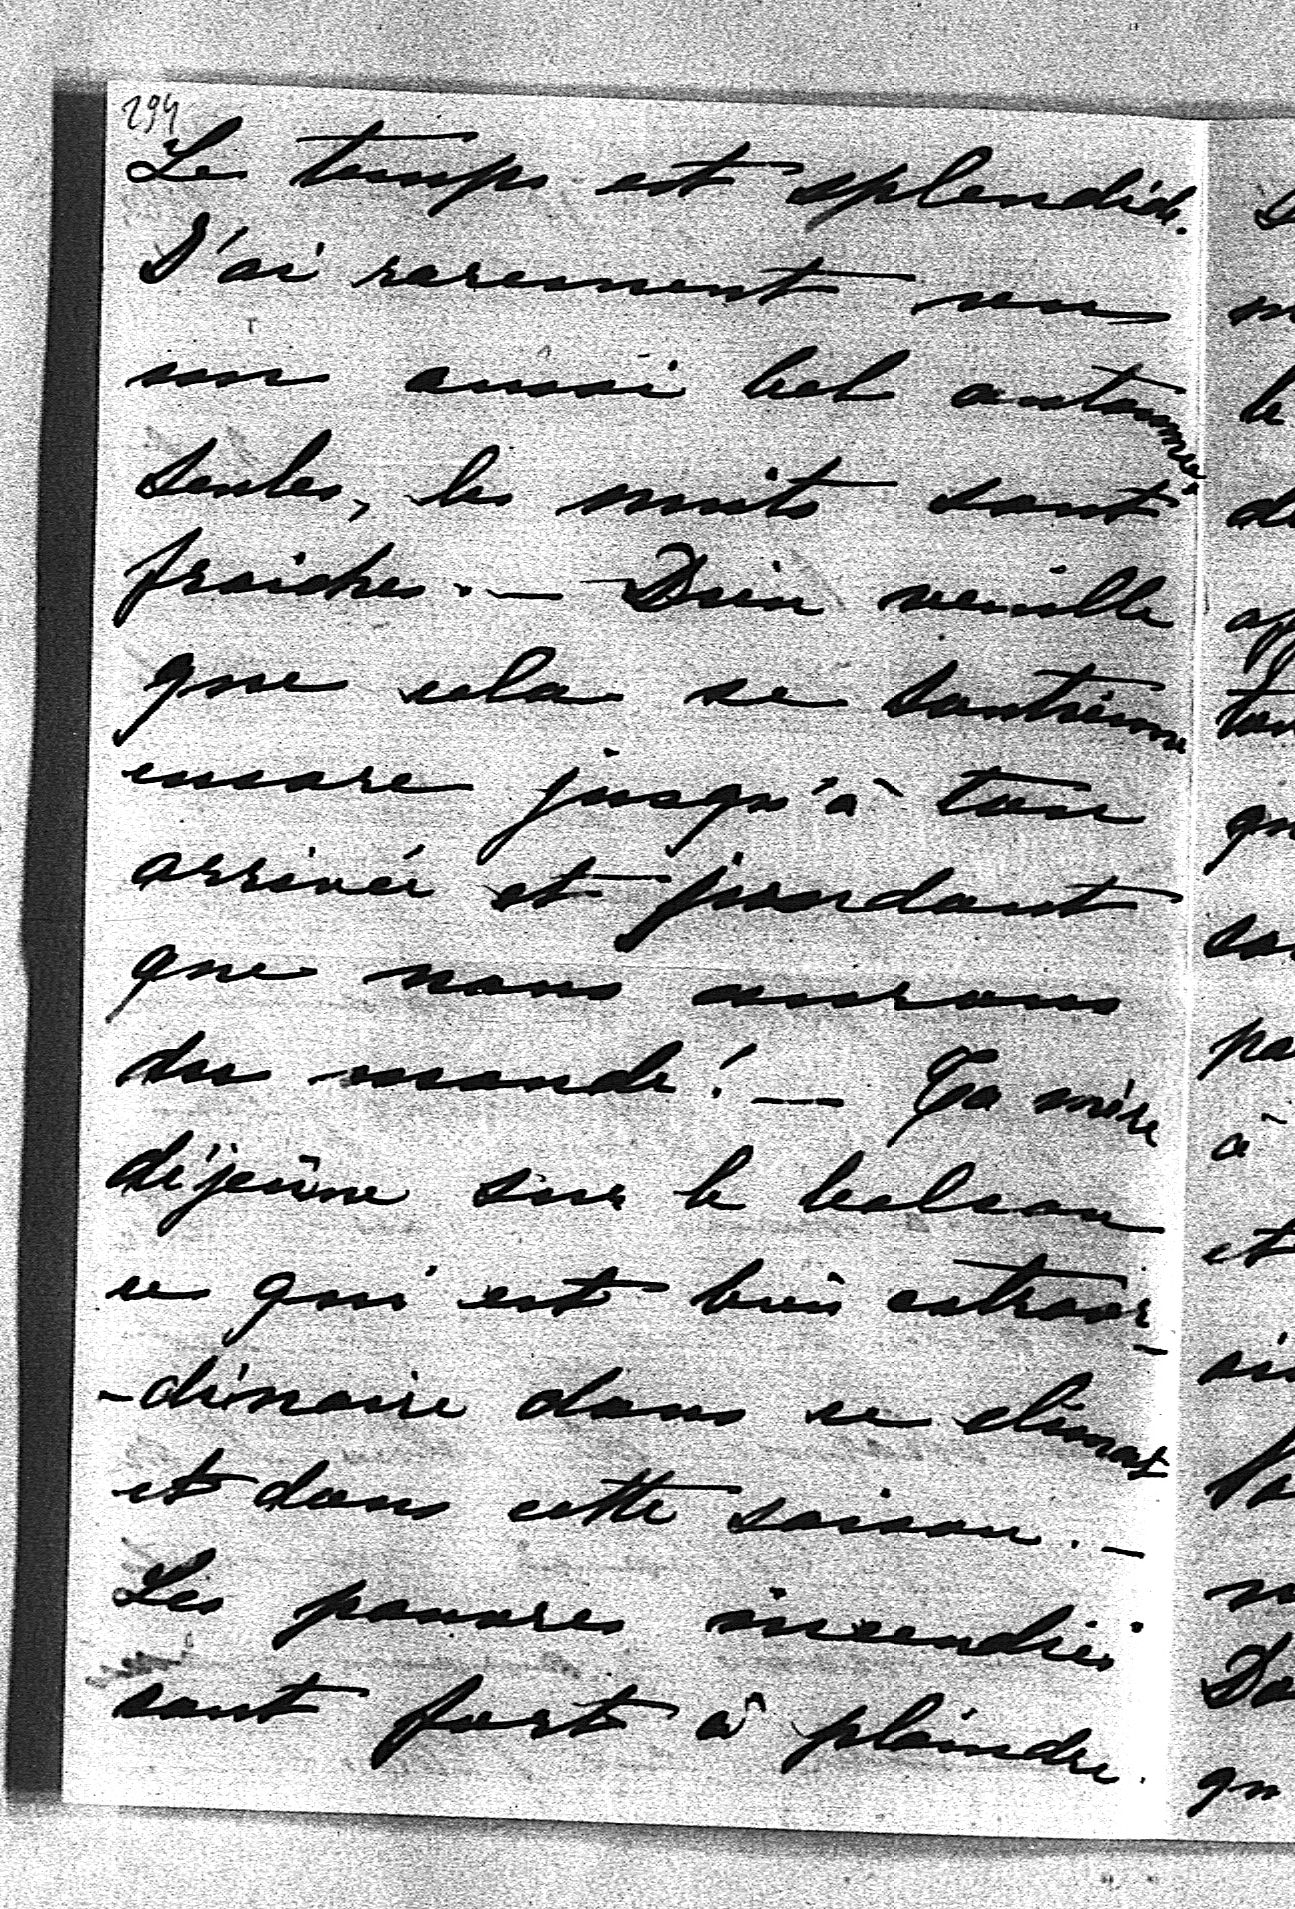 294
Le temps est splendide.
J'ai rarement vu
un aussi bel automne;
seules, les nuits sont
fraiches. — Dieu veuille
que cela se soutienne
encore jusqu'à ton
arrivée et pendant
que nous aurons
du monde! — Ta mère
déjeûne sur le balcon
ce qui est bien extraor-
-dinaire dans ce climat
et dans cette saison. —
Les pauvres incendiés
sont fort à plaindre.